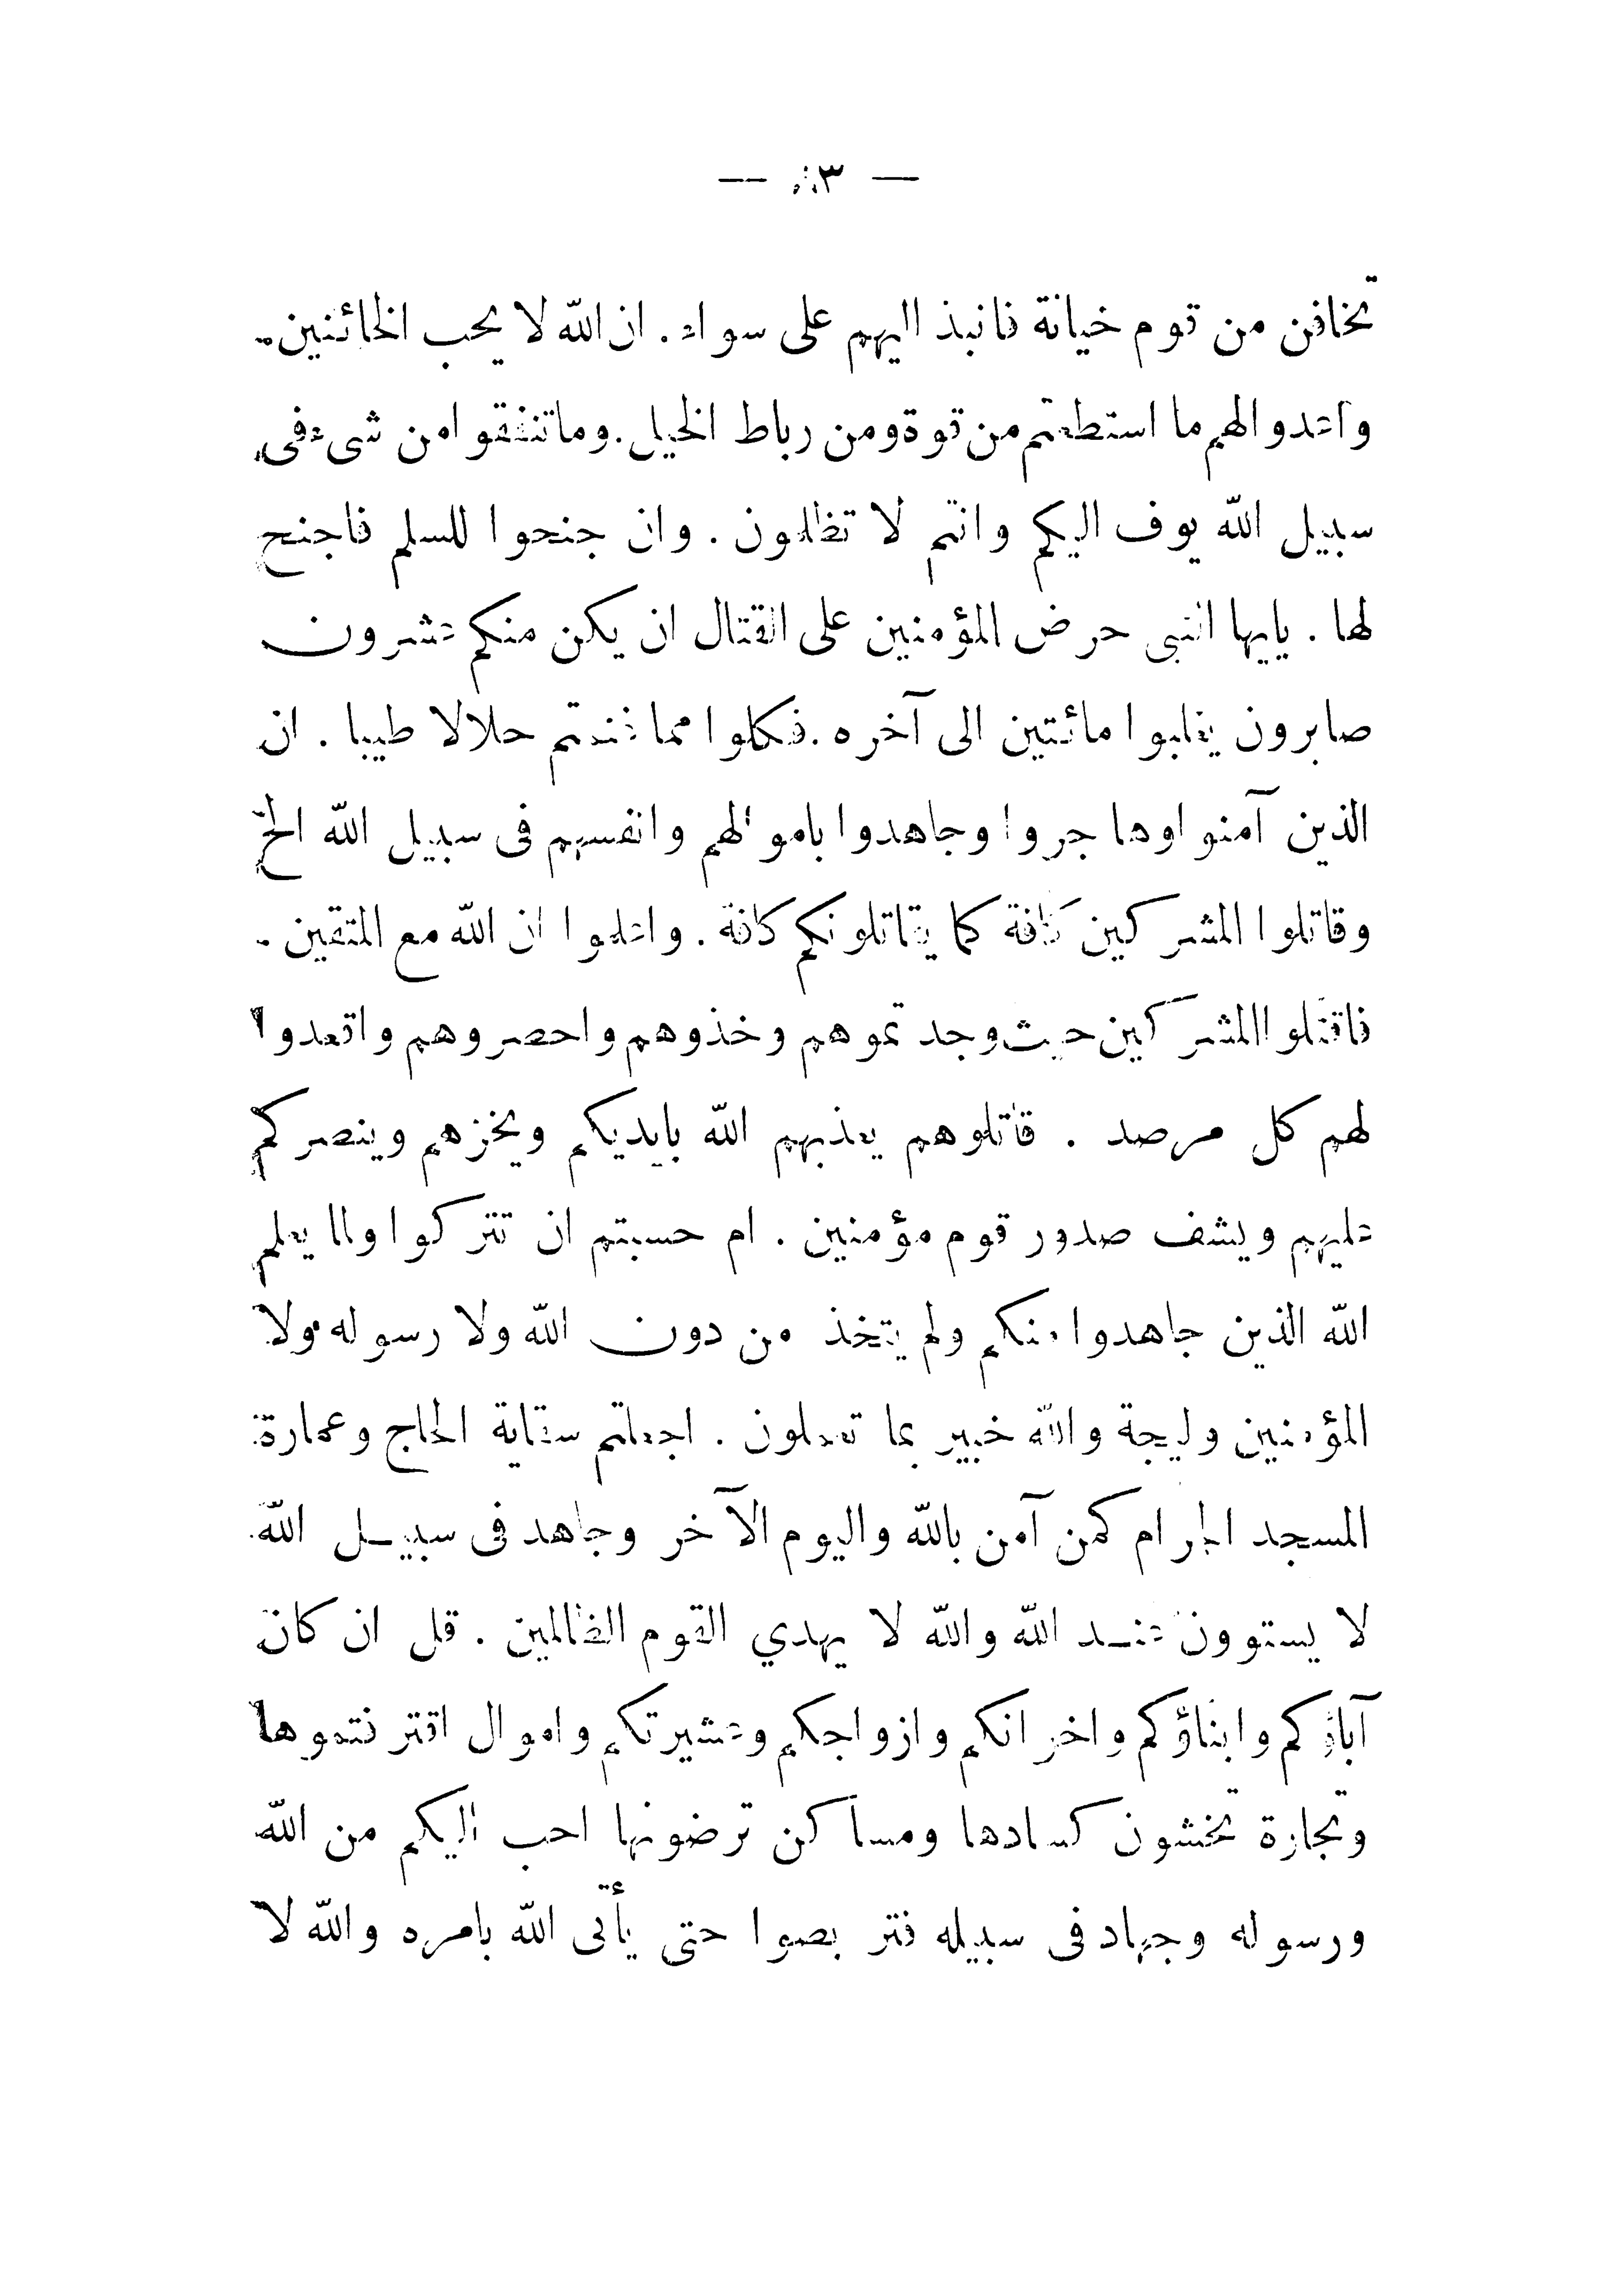 تخافن من قوم خيانة فانبذ اليهم على سواء . ان الله لا يحب الخائنين .
واعدوا لهم ما استطعتم من قوة ومن رباط الخيل . وما تنفقوا من شىء فى
سبيل الله يوف اليكم وانتم لا تظلمون . وان جنحوا للسلم فاجنح
لها . يايها النبى حرض المؤمنين على القتال ان يكن منكم عشرون
صابرون يغلبوا مائتين الى آخره . فكلوا مما غنمتم حلالا طيبا . ان
الذين آمنوا وهاجروا وجاهدوا باموالهم وانفسهم فى سبيل الله الخ
وقاتلوا المشركين كافة كما يقاتلونكم كافة . واعلموا ان الله مع المتقين .
فاقتلوا المشركين حيث وجدتموهم وخذوهم واحصروهم واقعدوا
لهم كل مرصد . قاتلوهم يعذبهم الله بايديكم ويخزهم وينصركم
عليهم ويشف صدور قوم مؤمنين . ام حسبتم ان تتركوا ولما يعلم
الله الذين جاهدوا منكم ولم يتخذ من دون الله ولا رسوله ولا
المؤمنين وليجة والله خبير بما تعملون . اجعلتم سقاية الحاج وعمارة
المسجد الحرام كمن آمن بالله واليوم الآخر وجاهد فى سبيل الله
لا يستوون عند الله والله لا يهدي القوم الظالمين . قل ان كان
آباؤكم وابناؤكم واخوانكم وازواجكم وعشيرتكم واموال اقترفتموها
وتجارة تخشون كسادها ومساكن ترضونها احب اليكم من الله
ورسوله وجهاد فى سبيله فتربصوا حتى يأتى الله بامره والله لا